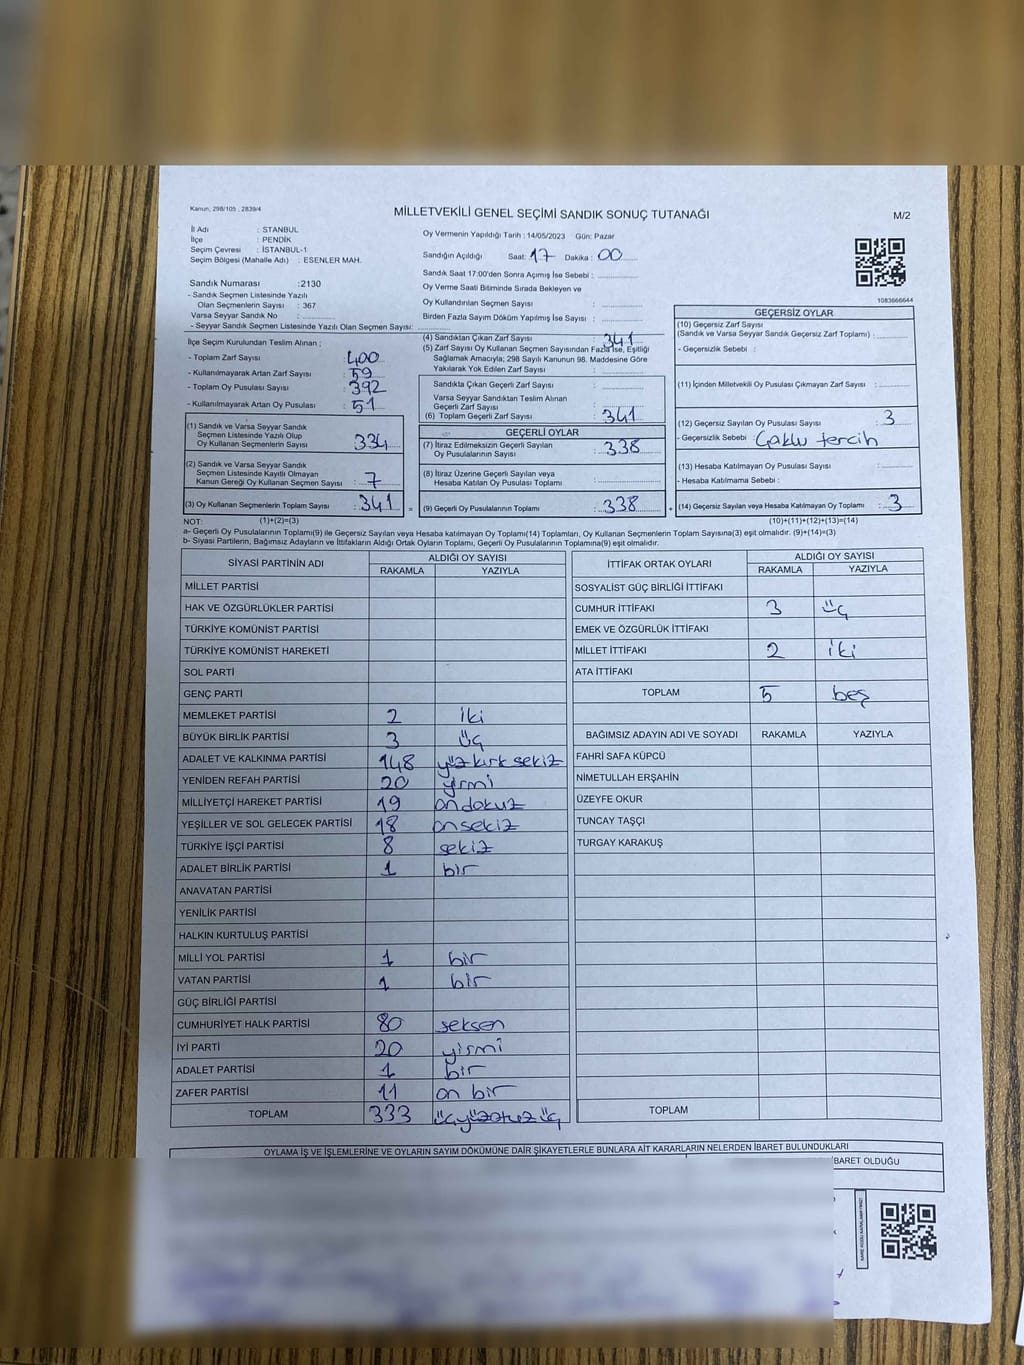 Kanun, 298/105 , 2839/4
MİLLETVEKİLİ GENEL SEÇİMİ SANDIK SONUÇ TUTANAĞI
M/2
İl Adı : STANBUL
İlçe : PENDİK
Seçim Çevresi : İSTANBUL-1
Seçim Bölgesi (Mahalle Adı) : ESENLER MAH.
Oy Vermenin Yapıldığı Tarih : 14/05/2023 Gün: Pazar
Sandığın Açıldığı Saat: 17 Dakika : 00
Sandık Saat 17:00'den Sonra Açımış İse Sebebi :
Oy Verme Saati Bitiminde Sırada Bekleyen ve
Oy Kullandırılan Seçmen Sayısı :
Birden Fazla Sayım Döküm Yapılmış İse Sayısı :
1083666644
Sandık Numarası :2130
- Sandık Seçmen Listesinde Yazılı
Olan Seçmenlerin Sayısı : 367
Varsa Seyyar Sandık No :
- Seyyar Sandık Seçmen Listesinde Yazılı Olan Seçmen Sayısı:
İlçe Seçim Kurulundan Teslim Alınan ;
- Toplam Zarf Sayısı : 400
- Kullanılmayarak Artan Zarf Sayısı : 59
- Toplam Oy Pusulası Sayısı : 392
- Kullanılmayarak Artan Oy Pusulası : 51
(1) Sandık ve Varsa Seyyar Sandık
Seçmen Listesinde Yazılı Olup
Oy Kullanan Seçmenlerin Sayısı : 334
(2) Sandık ve Varsa Seyyar Sandık
Seçmen Listesinde Kayıtlı Olmayan
Kanun Gereği Oy Kullanan Seçmen Sayısı : 7
(3) Oy Kullanan Seçmenlerin Toplam Sayısı : 341 =
(4) Sandıktan Çıkan Zarf Sayısı : 341
(5) Zarf Sayısı Oy Kullanan Seçmen Sayısından Fazla İse, Eşitliği
Sağlamak Amacıyla; 298 Sayılı Kanunun 98. Maddesine Göre
Yakılarak Yok Edilen Zarf Sayısı :
Sandıkta Çıkan Geçerli Zarf Sayısı :
Varsa Seyyar Sandıktan Teslim Alınan
Geçerli Zarf Sayısı :
(6) Toplam Geçerli Zarf Sayısı : 341
GEÇERLİ OYLAR
(7) İtiraz Edilmeksizin Geçerli Sayılan
Oy Pusulalarının Sayısı : 338
(8) İtiraz Üzerine Geçerli Sayılan veya
Hesaba Katılan Oy Pusulası Toplamı :
(9) Geçerli Oy Pusulalarının Toplamı : 338 +
GEÇERSİZ OYLAR
(10) Geçersiz Zarf Sayısı
(Sandık ve Varsa Seyyar Sandık Geçersiz Zarf Toplamı) :
- Geçersizlik Sebebi :
(11) İçinden Milletvekili Oy Pusulası Çıkmayan Zarf Sayısı :
(12) Geçersiz Sayılan Oy Pusulası Sayısı : 3
- Geçersizlik Sebebi : Çoklu tercih
(13) Hesaba Katılmayan Oy Pusulası Sayısı :
- Hesaba Katılmama Sebebi :
(14) Geçersiz Sayılan veya Hesaba Katılmayan Oy Toplamı : 3
NOT: (1)+(2)=(3) (10)+(11)+(12)+(13)=(14)
a- Geçerli Oy Pusulalarının Toplamı(9) ile Geçersiz Sayılan veya Hesaba Katılmayan Oy Toplamı(14) Toplamları, Oy Kullanan Seçmenlerin Toplam Sayısına(3) eşit olmalıdır. (9)+(14)=(3)
b- Siyasi Partilerin, Bağımsız Adayların ve İttifakların Aldığı Ortak Oyların Toplamı, Geçerli Oy Pusulalarının Toplamına(9) eşit olmalıdır.
SİYASİ PARTİNİN ADI ALDIĞI OY SAYISI
RAKAMLA YAZIYLA
MİLLET PARTİSİ
HAK VE ÖZGÜRLÜKLER PARTİSİ
TÜRKİYE KOMÜNİST PARTİSİ
TÜRKİYE KOMÜNİST HAREKETİ
SOL PARTİ
GENÇ PARTİ
MEMLEKET PARTİSİ 2 iki
BÜYÜK BİRLİK PARTİSİ 3 üç
ADALET VE KALKINMA PARTİSİ 148 yüz kırk sekiz
YENİDEN REFAH PARTİSİ 20 yirmi
MİLLİYETÇİ HAREKET PARTİSİ 19 on dokuz
YEŞİLLER VE SOL GELECEK PARTİSİ 18 on sekiz
TÜRKİYE İŞÇİ PARTİSİ 8 sekiz
ADALET BİRLİK PARTİSİ 1 bir
ANAVATAN PARTİSİ
YENİLİK PARTİSİ
HALKIN KURTULUŞ PARTİSİ
MİLLİ YOL PARTİSİ 1 bir
VATAN PARTİSİ 1 bir
GÜÇ BİRLİĞİ PARTİSİ
CUMHURİYET HALK PARTİSİ 80 seksen
İYİ PARTİ 20 yirmi
ADALET PARTİSİ 1 bir
ZAFER PARTİSİ 11 on bir
TOPLAM 333 üçyüzotuz üç
İTTİFAK ORTAK OYLARI ALDIĞI OY SAYISI
RAKAMLA YAZIYLA
SOSYALİST GÜÇ BİRLİĞİ İTTİFAKI
CUMHUR İTTİFAKI 3 üç
EMEK VE ÖZGÜRLÜK İTTİFAKI
MİLLET İTTİFAKI 2 iki
ATA İTTİFAKI
TOPLAM 5 beş
BAĞIMSIZ ADAYIN ADI VE SOYADI RAKAMLA YAZIYLA
FAHRİ SAFA KÜPCÜ
NİMETULLAH ERŞAHİN
ÜZEYFE OKUR
TUNCAY TAŞÇI
TURGAY KARAKUŞ
TOPLAM
OYLAMA İŞ VE İŞLEMLERİNE VE OYLARIN SAYIM DÖKÜMÜNE DAİR ŞİKAYETLERLE BUNLARA AİT KARARLARIN NELERDEN İBARET BULUNDUKLARI
BARET OLDUĞU